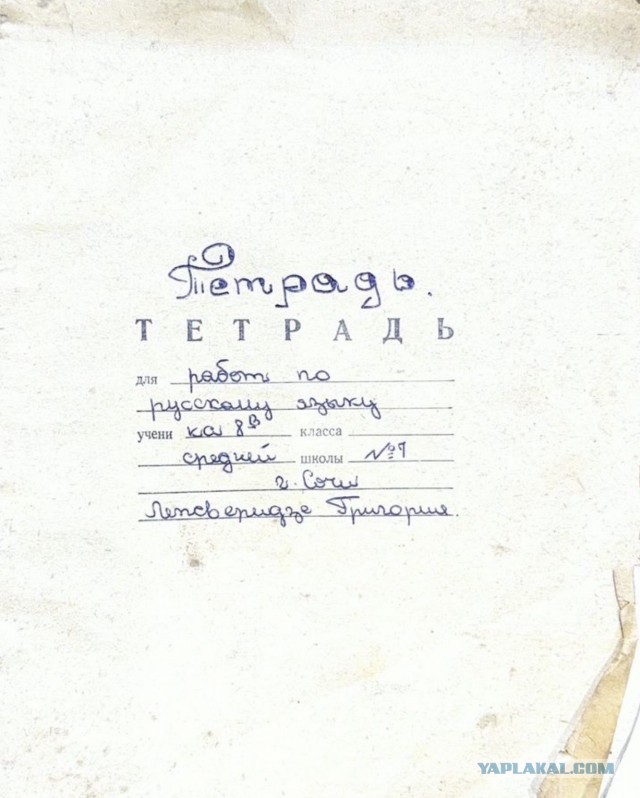 Тетрадь.
ТЕТРАДЬ
для работ по
русскому языку
учени ка 8В класса
средней школы №7
г. Сочи
Лепсверидзе Григория.
YAPLAKAL.COM